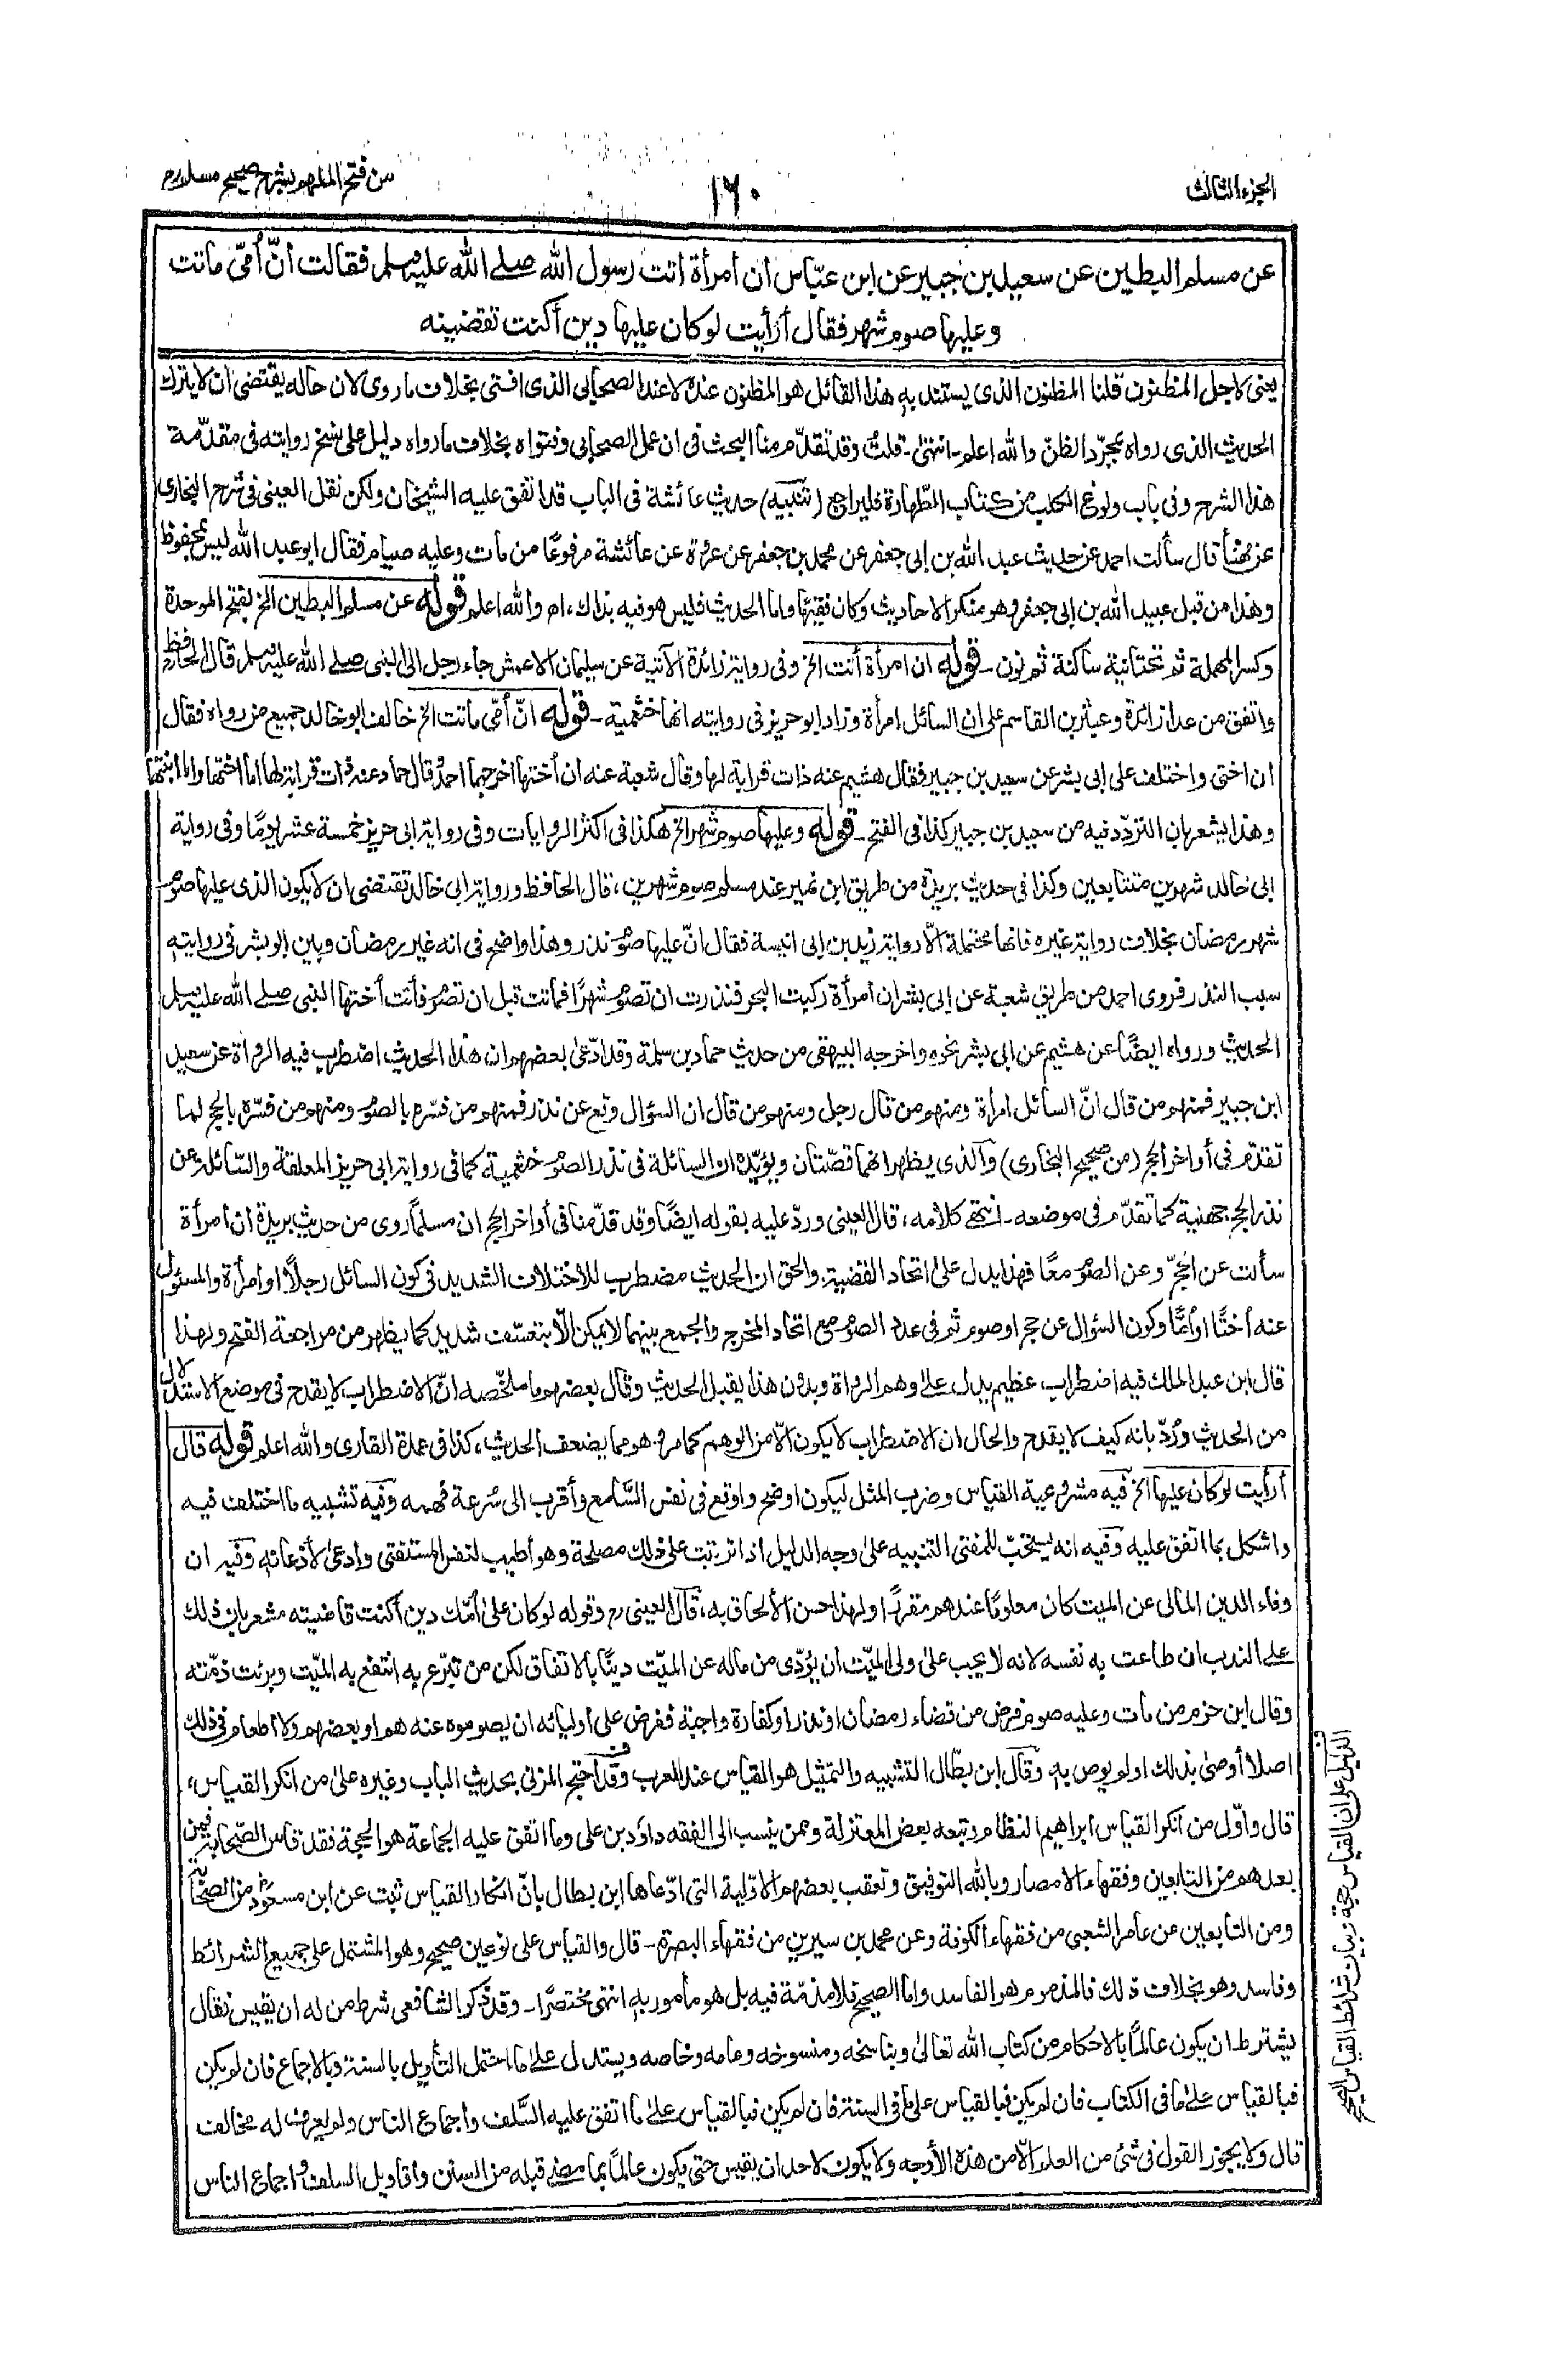 الجزء الثالث
١٦٠
من فتح الملهم بشرح صحيح مسلم
عن مسلم البطين عن سعيد بن جبير عن ابن عبّاس ان امرأة اتت رسول الله صلے الله عليه وسلم فقالت انّ أمّي ماتت
وعليها صوم شهر فقال أرأيت لو كان عليها دين أكنت تقضينه
يعنى لاجل المظنون قلنا المظنون الذى يستند به هذا القائل هو المظنون عنده لا عند الصحابي الذى افتى بخلاف ما روى لان حاله يقتضى ان لا يترك
الحديث الذى رواه بمجرّد الظن والله اعلم ـ انتهىٰ ـ قلتُ وقد تقدّم منا البحث فى ان عمل الصحابي وفتواه بخلاف ما رواه دليل على نسخ روايته فى مقدّمة
هذا الشرح وفى باب ولوغ الكلب من كتاب الطّهارة فليراجع (تنبيه) حديث عائشة فى الباب قد اتفق عليه الشيخان ولكن نقل العينى فى شرح البخارى
عن مهنأ قال سألت احمد عن حديث عبد الله بن ابى جعفر عن محمد بن جعفر عن عروة عن عائشة مرفوعًا من مات وعليه صيام فقال ابو عبد الله ليس بمحفوظ
وهذا من قبل عبيد الله بن ابى جعفر وهو منكر الاحاديث وكان فقيها واما الحديث فليس هو فيه بذاك، اه والله اعلم قوله عن مسلم البطين الخ بفتح الموحدة
وكسر المهملة ثم تحتانية ساكنة ثم نون ـ قوله ان امرأة أتت الخ وفى رواية زائدة الآتية عن سليمان الاعمش جاء رجل الى النبى صلے الله عليه وسلم قال الحافظ
واتفق من عدا زائدة وعبثر بن القاسم على ان السائل امرأة وزاد ابو حريز فى روايته انها خثعمية ـ قوله انّ أمّى ماتت الخ خالف ابو خالد جميع من رواه فقال
ان اختى واختلف على ابى بشر عن سعيد بن جبير فقال هشيم عنه ذات قرابة لها وقال شعبة عنه ان أختها اخرجهما احمد وقال حماد عنه ذات قرابة لها اما اختها واما ابنتها
وهذا يشعر بان التردّد فيه من سعيد بن جبير كذا فى الفتح ـ قوله وعليها صوم شهر الخ هكذا فى اكثر الروايات وفى رواية ابى حريز خمسة عشر يومًا وفى رواية
ابى خالد شهرين متتابعين وكذا فى حديث بريدة من طريق ابن نمير عند مسلم صوم شهرين، قال الحافظ ورواية ابى خالد تقتضى ان لا يكون الذى عليها صوم
شهر رمضان بخلاف رواية غيره فانها محتملة الّا رواية زيد بن ابى انيسة فقال انّ عليها صوم نذر وهذا واضح فى انه غير رمضان وبين ابو بشر فى روايته
سبب النذر فروى احمد من طريق شعبة عن ابى بشر ان امرأة ركبت البحر فنذرت ان تصوم شهرًا فماتت قبل ان تصوم فأتت أختها النبى صلے الله عليه وسلم
الحديث ورواه ايضًا عن هشيم عن ابى بشر نحوه واخرجه البيهقى من حديث حماد بن سلمة وقد ادّعى بعضهم ان هذا الحديث اضطرب فيه الرواة عن سعيد
ابن جبير فمنهم من قال انّ السائل امرأة ومنهم من قال رجل ومنهم من قال ان السؤال وقع عن نذر فمنهم من فسّره بالصوم ومنهم من فسّره بالحج لما
تقدّم فى أواخر الحج (من صحيح البخارى) والذى يظهر انهما قصّتان ويؤيّده ان السائلة فى نذر الصوم خثعمية كما فى رواية ابى حريز المعلقة والسّائلة عن
نذر الحج جهنية كما تقدّم فى موضعه ـ انتهى كلامه، قال العينى وردّ عليه بقوله ايضًا وقد قدّمنا فى أواخر الحج ان مسلمًا روى من حديث بريدة ان امرأة
سألت عن الحجّ وعن الصوم معًا فهذا يدل علىٰ اتحاد القضية، والحق ان الحديث مضطرب للاختلاف الشديد فى كون السائل رجلًا او امرأة والمسئول
عنه أختًا او أمًّا وكون السؤال عن حج او صوم ثم فى عدد الصوم مع اتحاد المخرج والجمع بينهما لا يمكن الّا بتعسّف شديد كما يظهر من مراجعة الفتح ولهذا
قال ابن عبد الملك فيه اضطراب عظيم يدل علىٰ وهم الرواة وبدون هذا يقبل الحديث وقال بعضهم ما ملخّصه انّ الاضطراب لا يقدح فى موضع الاستدلال
من الحديث ورُدّ بانه كيف لا يقدح والحال ان الاضطراب لا يكون الّا من الوهم كما مر وهو مما يضعف الحديث، كذا فى عمدة القارى والله اعلم قوله قال
أرأيت لو كان عليها الخ فيه مشروعية القياس وضرب المثل ليكون اوضح واوقع فى نفس السّامع وأقرب الى سُرعة فهمه وفيه تشبيه ما اختلف فيه
واشكل بما اتفق عليه وفيه انه يستحبّ للمفتى التنبيه علىٰ وجه الدليل اذا ترتبت على ذلك مصلحة وهو أطيب لنفس المستفتى وادعىٰ لأذعانه وفيه ان
وفاء الدين المالى عن الميت كان معلومًا عندهم مقررًا ولهذا حسن الألحاق به، قال العينى رح وقوله لو كان علىٰ أمّك دين أكنت قاضيته مشعر بان ذلك
على الندب ان طاعت به نفسه لانه لا يجب علىٰ ولى الميّت ان يؤدّى من ماله عن الميّت دينًا بالاتفاق لكن من تبرّع به انتفع به الميّت وبرئت ذمّته
وقال ابن حزم من مات وعليه صوم فرض من قضاء رمضان او نذر او كفارة واجبة ففرض على أوليائه ان يصوموه عنه هم او بعضهم ولا اطعام فى ذلك
اصلا أوصىٰ بذلك او لم يوص به وقال ابن بطّال التشبيه والتمثيل هو القياس عند العرب وقد احتج المزنى بحديث الباب وغيره علىٰ من انكر القياس،
قال واوّل من انكر القياس ابراهيم النظام وتبعه بعض المعتزلة وممن ينسب الى الفقه داوٗد بن على وما اتفق عليه الجماعة هو الحجة فقد قاس الصّحابة فمن
بعدهم من التابعين وفقهاء الامصار وبالله التوفيق وتعقب بعضهم الاوّلية التى ادّعاها ابن بطال بانّ انكار القياس ثبت عن ابن مسعود من الصحابة
ومن التابعين عن عامر الشعبى من فقهاء الكوفة وعن محمد بن سيرين من فقهاء البصرة ـ قال والقياس على نوعين صحيح وهو المشتمل على جميع الشرائط
وفاسد وهو بخلاف ذلك فالمذموم هو الفاسد واما الصحيح فلا مذمّة فيه بل هو مأمور به انتهى مختصرًا ـ وقد ذكر الشافعى شرط من له ان يقيس فقال
يشترط ان يكون عالمًا بالاحكام من كتاب الله تعالىٰ وبناسخه ومنسوخه وعامه وخاصه ويستدل علىٰ ما احتمل التأويل بالسنة وبالاجماع فان لم يكن
فبالقياس علىٰ ما فى الكتاب فان لم يكن فبالقياس علىٰ ما فى السنة فان لم يكن فبالقياس علىٰ ما اتفق عليه السّلف واجماع الناس ولم يعرف له مخالف
قال ولا يجوز القول فى شئ من العلم الّا من هذه الأوجه ولا يكون لاحد ان يقيس حتى يكون عالمًا بما مضى قبله من السنن وأقاويل السلف واجماع الناس
الدليل على ان القياس حجة وبيان شرائط القياس الصحيح